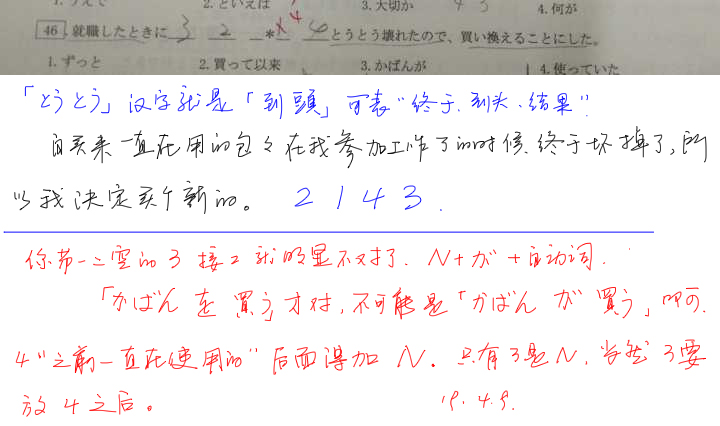 1. うえで 2. といえば 3. 大切か 4 3 4. 何が
46 就職したときに 3 2 * x 4 4 とうとう壊れたので、買い換えることにした。
1. ずっと 2. 買って以来 3. かばんが 4. 使っていた
「とうとう」汉字就是「到頭」可表"终于、到头、结果"
自买来一直在用的包包在我参加工作了的时候、终于坏掉了,所
以我决定买个新的。 2 1 4 3 .
你第一二空的3接2就明显不对了. N+が+自动词.
「かばんを買う」才对,不可能是「かばんが買う」吶可.
4"之前一直在使用的"后面得加N. 只有3是N,当然3要
放4之后。 19.4.9.